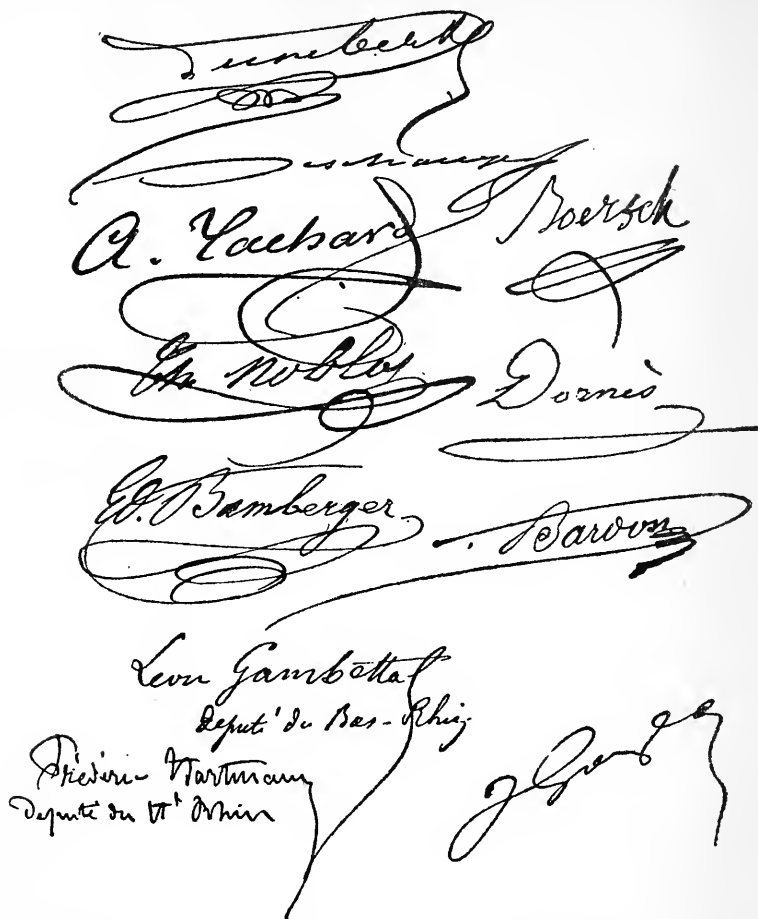 Humbert
Deschange
A. Tachard
Boersch
Th. Noblot
Dornès
Ed. Bamberger
Bardon
Leon Gambetta
Deputé du Bas-Rhin
Fréderic Hartmann
Deputé du Ht Rhin
J Grosjean